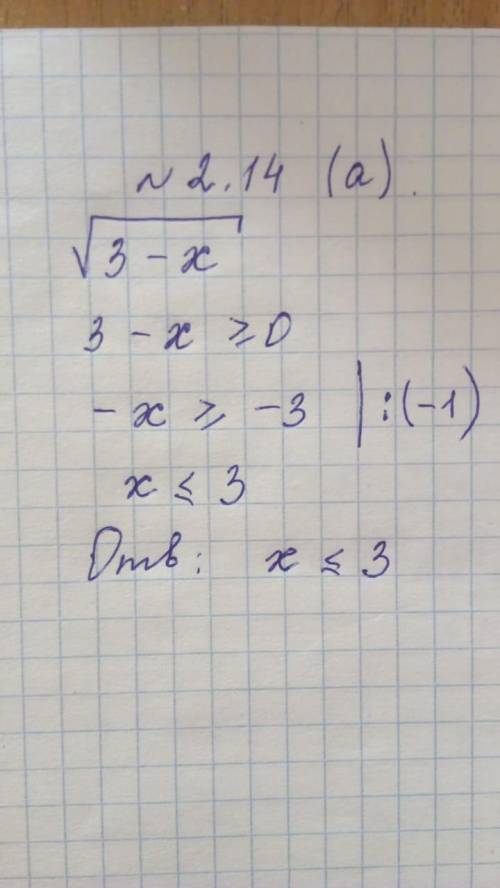 № 2.14 (а).
√3 - x
3 - x ≥ 0
- x ≥ -3 | :(-1)
x ≤ 3
Отв: x ≤ 3